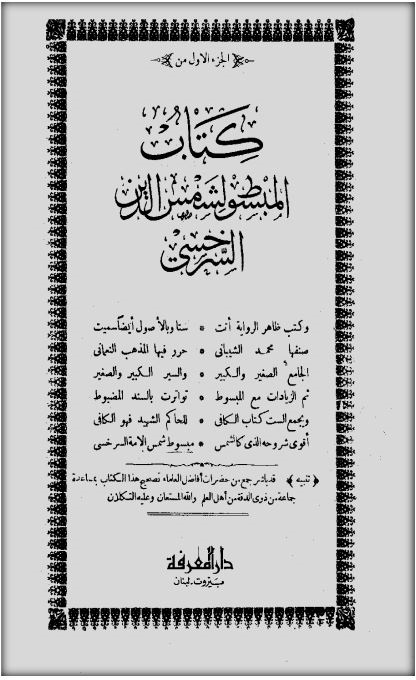 الجزء الاول من
كتاب
المبسوط لشمس الدين
السرخسي
وكتب ظاهر الرواية أتت * ستا وبالأصول أيضاً سميت
صنفها محمد الشيباني * حرر فيها المذهب النعماني
الجامع الصغير والكبير * والسير الكبير والصغير
ثم الزيادات مع المبسوط * تواترت بالسند المضبوط
ويجمع الست كتاب الكافي * للحاكم الشهيد فهو الكافي
أقوى شروحه الذي كالشمس * مبسوط شمس الأمة السرخسي
﴿ تنبيه ﴾ قد باشر جمع من حضرات أفاضل العلماء تصحيح هذا الكتاب بمساعدة
جماعة من ذوي الدقة من أهل العلم والله المستعان وعليه التكلان
دار المعرفة
بيروت . لبنان